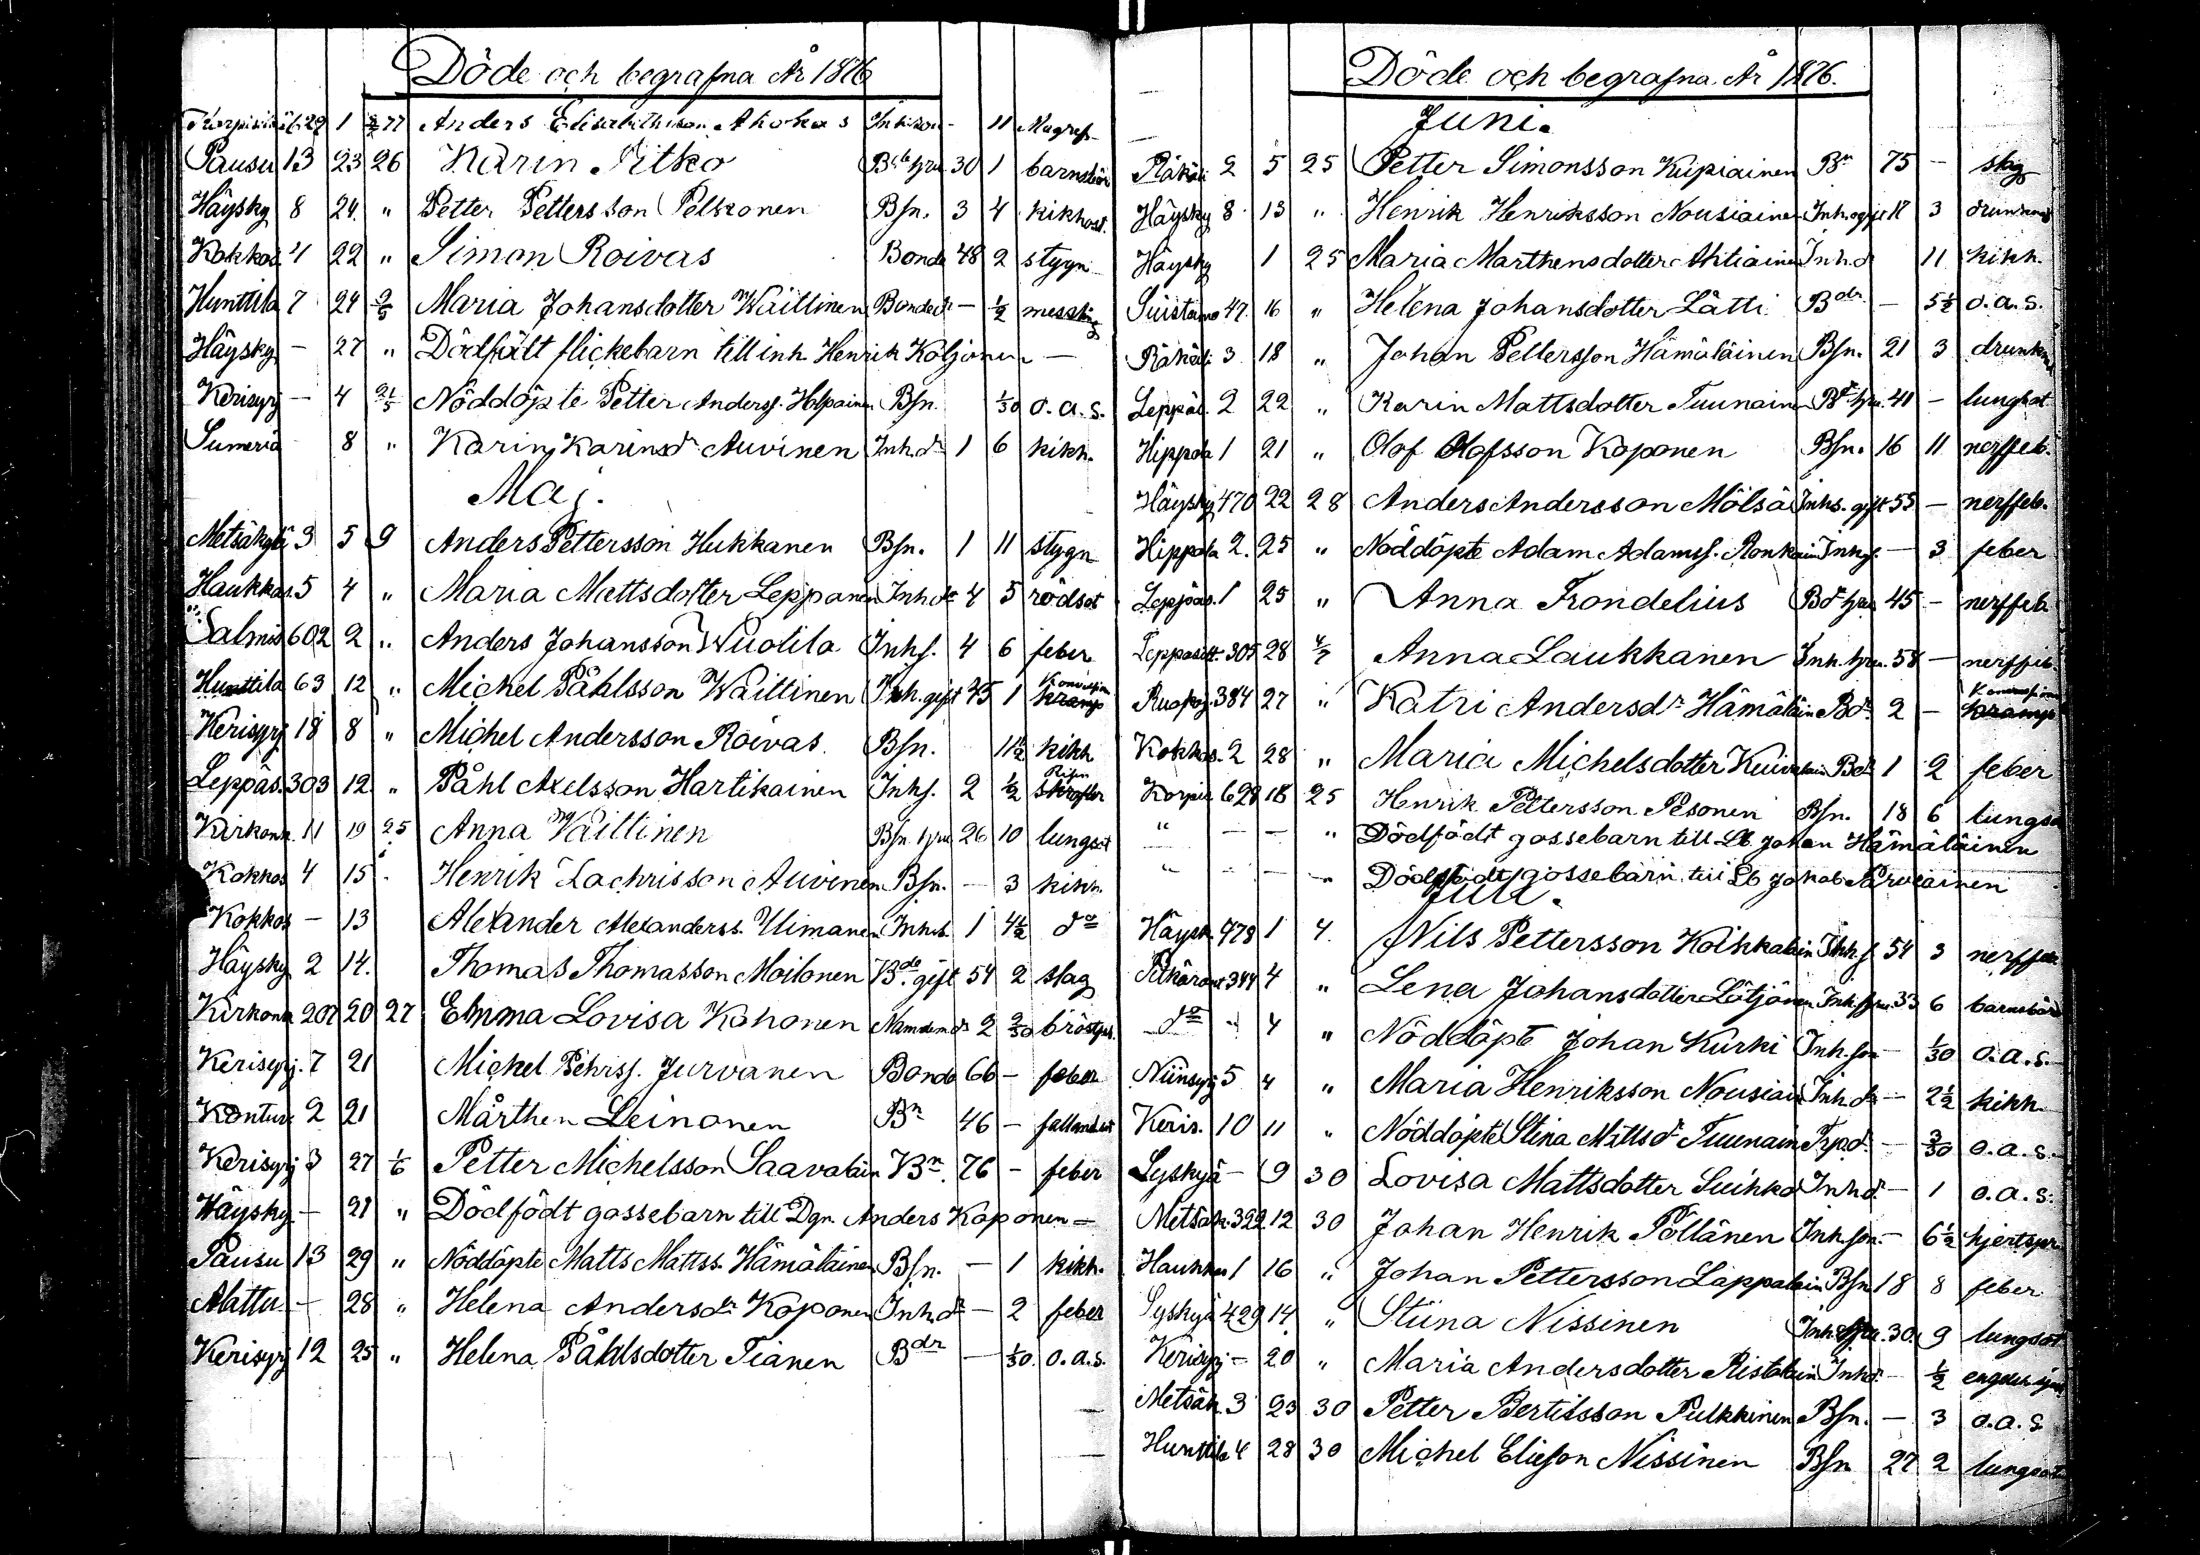 Döde och begrafna År 1876
629 1 Anders Elisabethsson Ahokas 11
Pausu 13 23 26 Karin Pitko 30 1 barnsbör
Häysky 8 24 " Petter Pettersson Pelkonen Bsn. 3 4 kikhost.
Kokkos 4 22 " Simon Roivas Bonde 48 2 stygn
Hunttila 7 24 2/5 Maria Johansdotter Wäittinen Bonded. - 1/2 messling
Häysky - 27 " Dödfödt flickebarn till inh Henrik Köljonen -
Kerisyrj - 4 21/5 Nöddöpte Petter Anderss. Holpainen Bsn. 1/30 o.a.s.
Sumeria 8 " Karin Karinsdr Auvinen Inh.dr 1 6 kikh.
Maj.
Metsäkylä 3 5 9 Anders Pettersson Hukkanen Bsn. 1 11 stygn
Haukkas. 5 4 " Maria Mattsdotter Leppänen Inh.dr 4 5 rödsot
Salmis 602 2 " Anders Johansson Wuotila Inhs. 4 6 feber
Hunttila 63 12 " Mickel Påhlsson Wäittinen Inh. gift 45 1 kramp
Kerisyrj 18 8 " Michel Andersson Roivas Bsn. 11 1/2 kikh
Leppäs. 303 12 " Påhl Axelsson Hartikainen Inhs. 2 1/2
Kirkonk. 11 19 25 Anna Wäittinen Bsn. hru 26 10 lungsot
Kokkos 4 15 Henrik Zachrisson Auvinen Bsn. - 3 kikh.
Kokkos - 13 Alexander Alexanderss. Uimanen Inhs. 1 4 1/2 do
Häysky 2 14. Thomas Thomasson Moilonen Bde. gift 54 2 slag
Kirkonk 207 20 27 Emma Lovisa Kohonen Nämdemdr 2 2/30
Kerisyrj. 7 21 Mickel Pehrss. Jurvanen Bonde 66 - feber
Kontus 2 21 Mårthen Leinonen Bn 46 - fallandesot
Kerisyrj 3 27 1/6 Petter Michelsson Saavalain Bn. 76 - feber
Häysky. - 21 " Dödfödt gossebarn till Dgn. Anders Koponen -
Pausu 13 29 " Nöddöpte Matts Mattss. Hämäläinen Bsn. - 1 kikh.
Alattu - 28 " Helena Andersdr Koponen Inh.dr - 2 feber
Kerisyrj 12 25 " Helena Påhlsdotter Tianen Bdr - 1/30 o.a.s.
Döde och begrafna År 1876.
Juni.
Räkäli 2 5 25 Petter Simonsson Kupiainen Bn 75 - slag
Häysky 8 13 " Henrik Henriksson Nousiainen 3 drunknad
Häysky 1 25 Maria Marthensdotter Inh.d 11 kikh.
Suistamo 47. 16 " Helena Johansdotter Lätti Bdr - 5 1/2 o.a.s.
Räkäli 3 18 " Johan Pettersson Hämäläinen Bsn. 21 3 drunknad
Leppäs. 2 22 " Karin Mattsdotter Tuunainen 41 - lungsot
Hippola 1 21 " Olof Olofsson Koponen Bsn. 16 11 nerffeb.
Häysky 470 22 28 Anders Andersson Mölsä Inhs. gift 55 - nerffeb.
Hippola 2. 25 " Nöddöpte Adam Adamss. Ronkain Inhs. - 3 feber
Leppäs. 1 25 " Anna Frondelius 45 - nerffeb
305 28 4/7 Anna Laukkanen Inh. hru. 58 - nerffeb.
384 27 " Katri Andersdr Hämäläin Bdr 2 - kramp
Kokkos. 2 28 " Maria Michelsdotter Bdr 1 2 feber
Korpis 628 18 25 Henrik Pettersson Pesonen Bsn. 18 6 lungsot
" - - " Dödfödt gossebarn till Lb. Johan Hämäläinen
" - - " Dödfödt gossebarn till Lb Jakob
Juli.
Häysk. 478 1 4. Nils Pettersson Koikkalain Inh.s 54 3 nerffeb
Pitkärant 344 4 " Lena Johansdotter Lötjönen Inh.hru. 33 6 barnsbörd
do " 4 " Nöddöpte Johan Kurki Inh.son - 1/30 o.a.s.
Niinsyrj 5 4 " Maria Henriksson Nousiain Inh.dr - 2 1/2 kikh.
Keris. 10 11 " Nöddöpte Stina Mattsdr Tuunain - 3/30 o.a.s.
Syskyä - 9 30 Lovisa Mattsdotter Suikko Inhd. - 1 o.a.s.
Metsäk. 322 12 30 Johan Henrik Pöllänen Inh.son. - 6 1/2
Haukkas 1 16 " Johan Pettersson Lappalain Bsn 18 8 feber
Syskyä 429 14 " Stiina Nissinen Inh. hru. 30 9 lungsot
Kerisyrj - 20 " Maria Andersdotter Ristolain Inhd. - 1/2
Metsäk. 3 23 30 Petter Bertilsson Pulkkinen Bsn. - 3 o.a.s
Hunttila 4 28 30 Michel Elieson Nissinen Bsn 27 2 lungsot